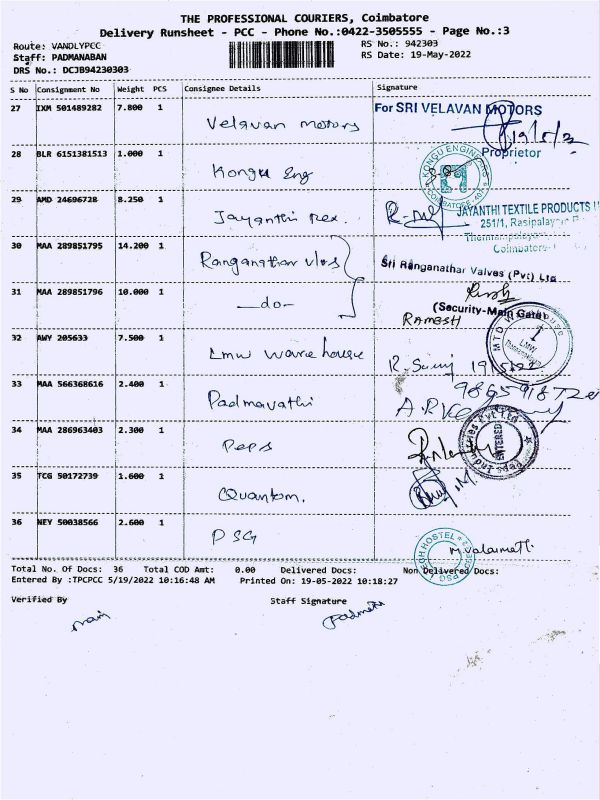 THE PROFESSIONAL COURIERS, Coimbatore
Delivery Runsheet - PCC - Phone No.:0422-3505555 - Page No.:3
Route: VANDLYPCC
RS No.: 942303
Staff: PADMANABAN
RS Date: 19-May-2022
DRS No.: DCJB94230303
S No Consignment No Weight PCS Consignee Details Signature
27 IXM 501489282 7.800 1
For SRI VELAVAN MOTORS
Velavan motors
19/5/22
Proprietor
28 BLR 6151381513 1.000 1
Kongu Eng
KONGU ENGINE
COIMBATORE
29 AMD 24696728 8.250 1
Jayanthi Tex.
JAYANTHI TEXTILE PRODUCTS
251/1, Rasipalayam
Coimbatore
30 MAA 289851795 14.200 1
Ranganathar vlvs
Sri Ranganathar Valves (Pvt) Ltd
31 MAA 289851796 10.000 1
-do-
(Security-Main Gate)
RAMESH
32 AWY 205633 7.500 1
Lmw ware house
LMW
19/5/22
33 MAA 566368616 2.400 1
Padmavathi
34 MAA 286963403 2.300 1
Peps
ENTERED
35 TCG 50172739 1.600 1
Quantom.
36 NEY 50038566 2.600 1
PSG
M.Valarmathi
Total No. Of Docs: 36 Total COD Amt: 0.00 Delivered Docs: Non Delivered Docs:
Entered By :TPCPCC 5/19/2022 10:16:48 AM Printed On: 19-05-2022 10:18:27
Verified By Staff Signature
Padmana